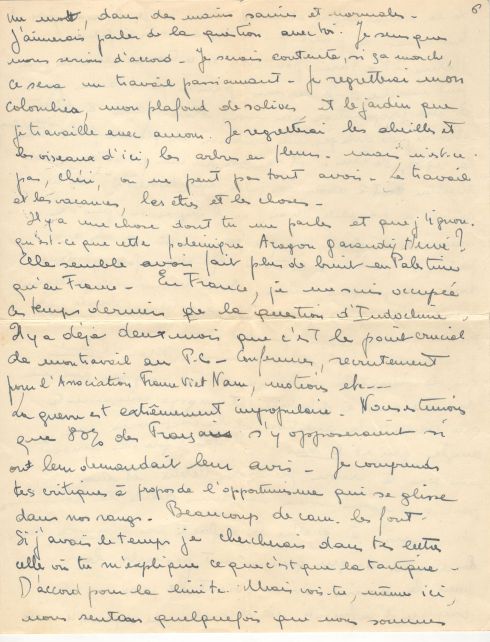 6
un mot, dans des mains saines et normales.
J'aimerais parler de la question avec toi. Je sens que
nous serions d'accord. Je serais contente, si ça march,
ce sera un travail passionnant. Je regretterai mon
colombier, mon plafond de solives et le jardin que
je travaille avec amour. Je regretterai les abeilles et
les oiseaux d'ici, les arbres en fleurs. mais n'est-ce
pas, chéri, on ne peut pas tout avoir. Le travail
et les vacances, les êtres et les choses.
Il y a une chose dont tu me parles et que j'ignore.
qu'est-ce que cette polémique Aragon Garaudy Hervé ?
Elle semble avoir fait plus de bruit en Palestine
qu'en France. En France, je me suis occupée
ces temps derniers de la question d'Indochine.
Il y a déjà deux mois que c'est le point crucial
de mon travail au P.C. Conférences, recrutement
pour l'Association France Viet Nam, motions etc--
La guerre est extrêmement impopulaire. Nous estimons
que 80% des Français s'y opposeraient si
on leur demandait leur avis. Je comprends
tes critiques à propos de l'opportunisme qui se glisse
dans nos rangs. Beaucoup de cam. les font.
Si j'avais le temps je chercherais dans tes lettres
celle où tu m'expliques ce que c'est que la tactique.
D'accord pour la limite. Mais vois-tu, même ici,
nous sentons quelquefois que nous sommes